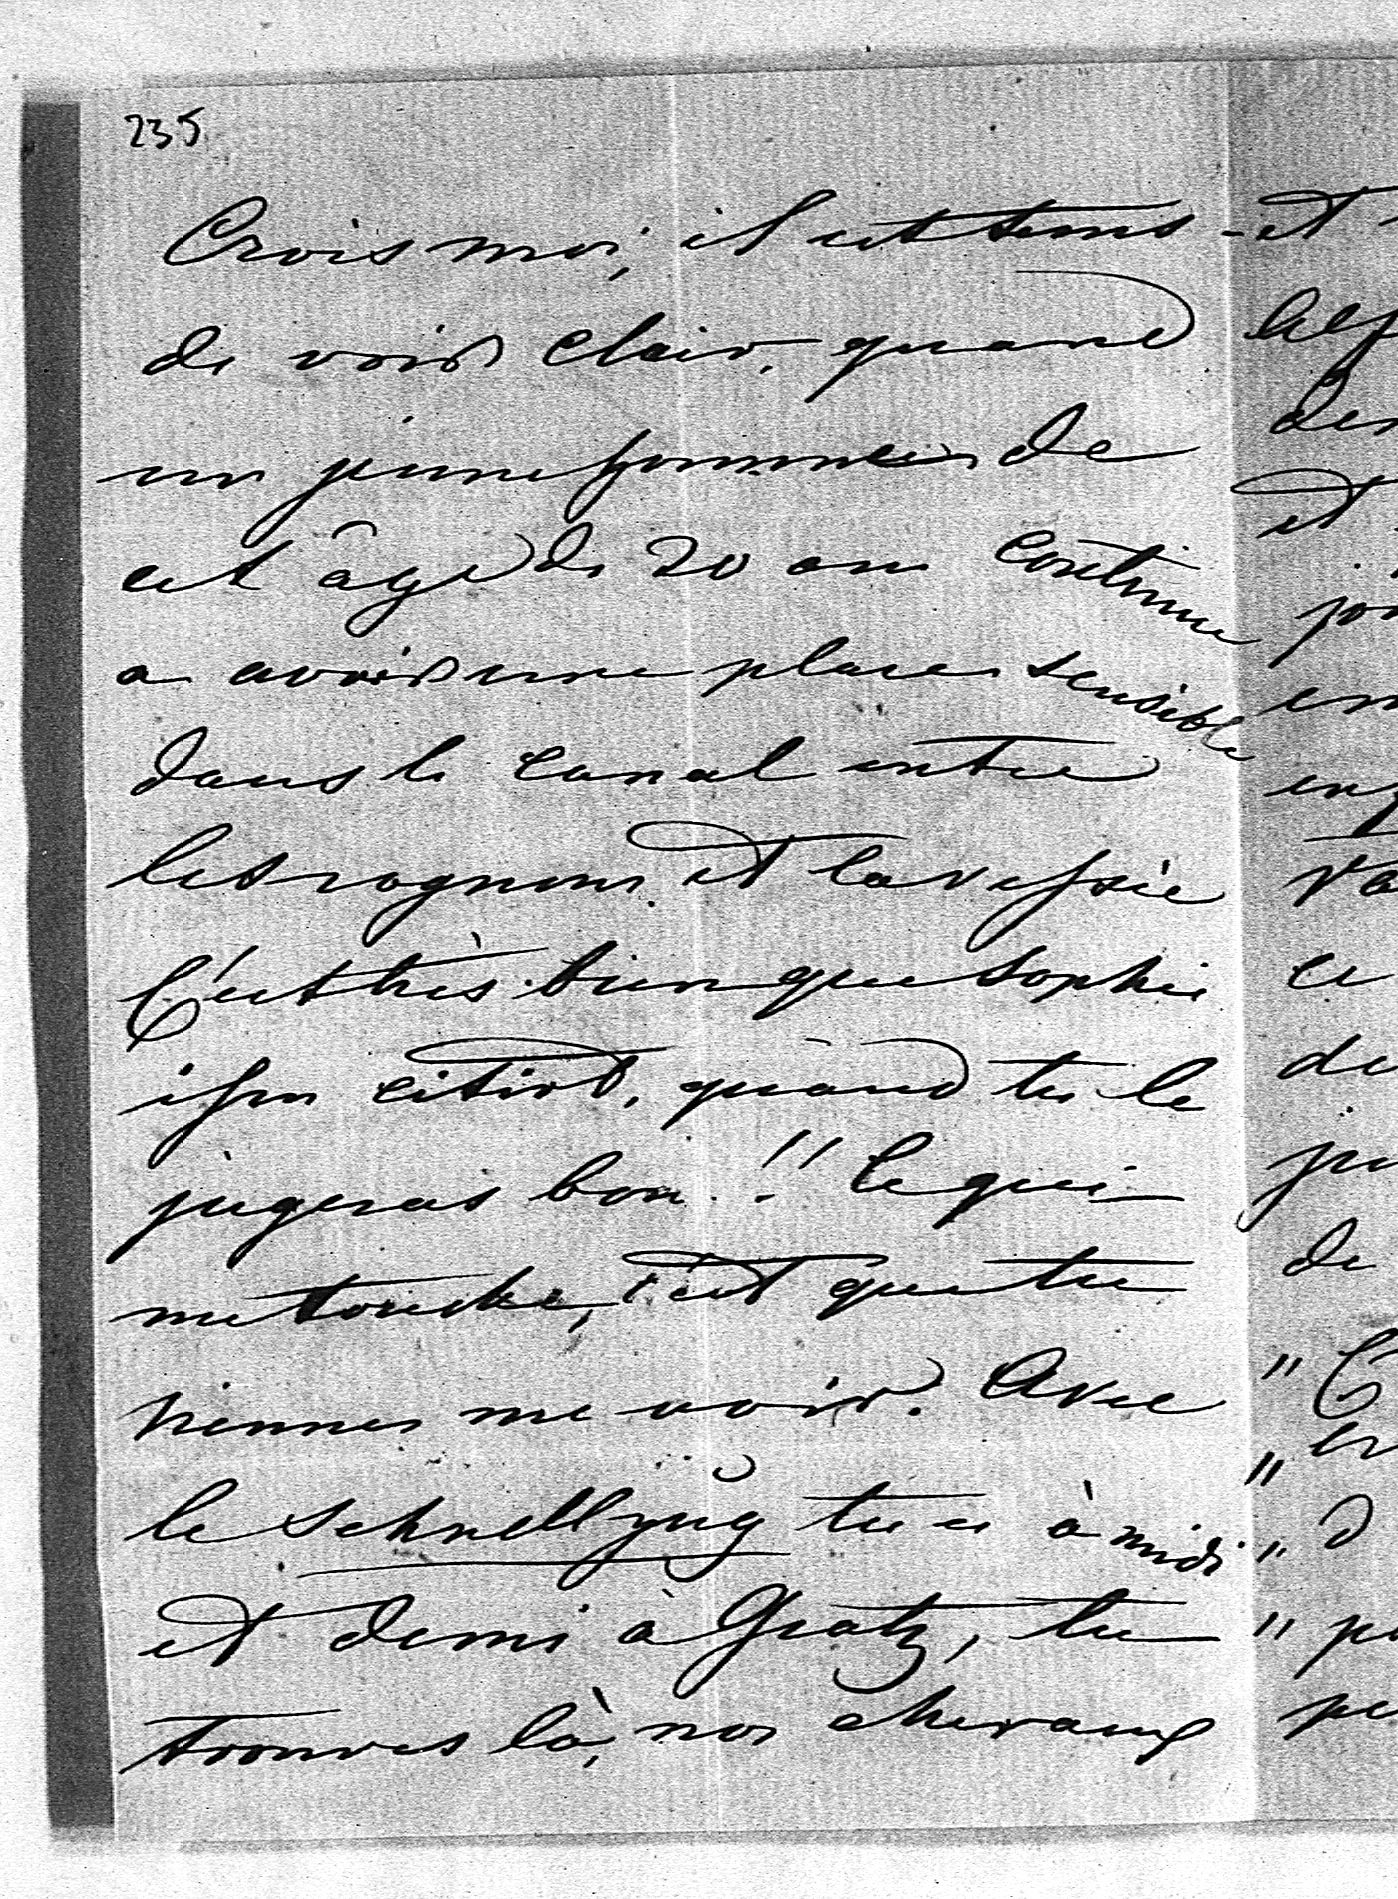 235
Crois moi, il est tems
de voir clair, quand
un jeune homme de
cet âge de 20 ans continue
a avoir une place sensible
dans le canal entre
les rognons et la vessie
C'est très bien que Sophie
quand tu le
jugeras bon!! Ce qui
me touche, c'est que tu
viennes me voir. Avec
le Schnellzug tu es à midi
et demi à Gratz, tu
trouves là, nos chevaux